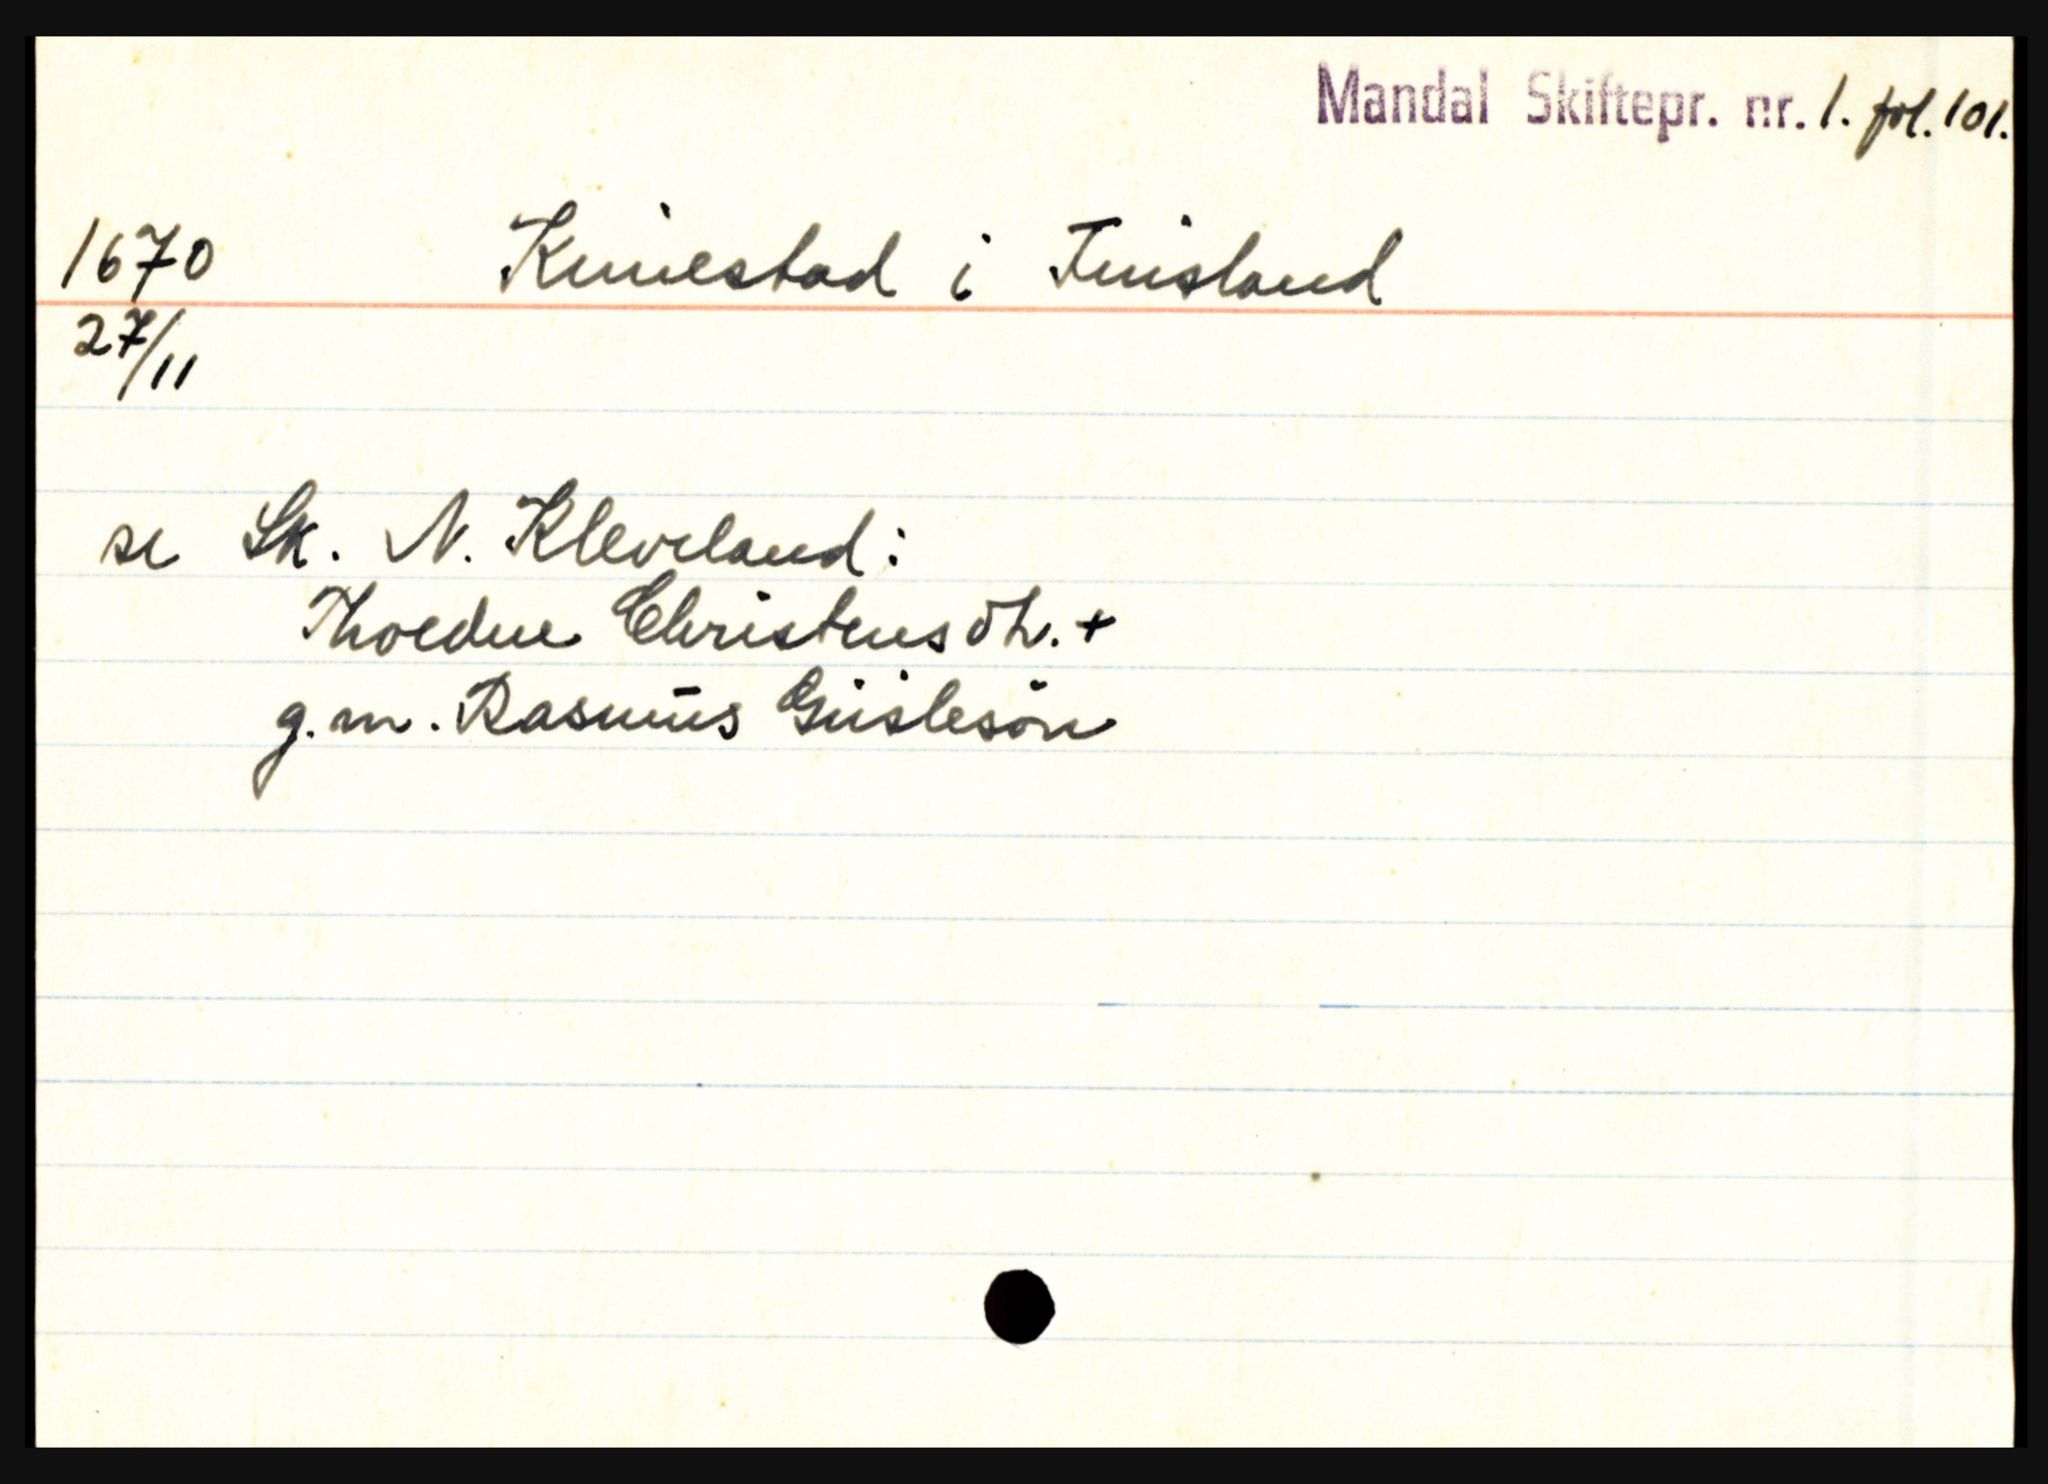 Mandal Skiftepr. nr. 1. fol. 101.
1670 Kuiestad i Finsland
27/11
se Sk. N. Kleveland:
Thoedne Christensdt. +
g.m. Rasmus Giislesön